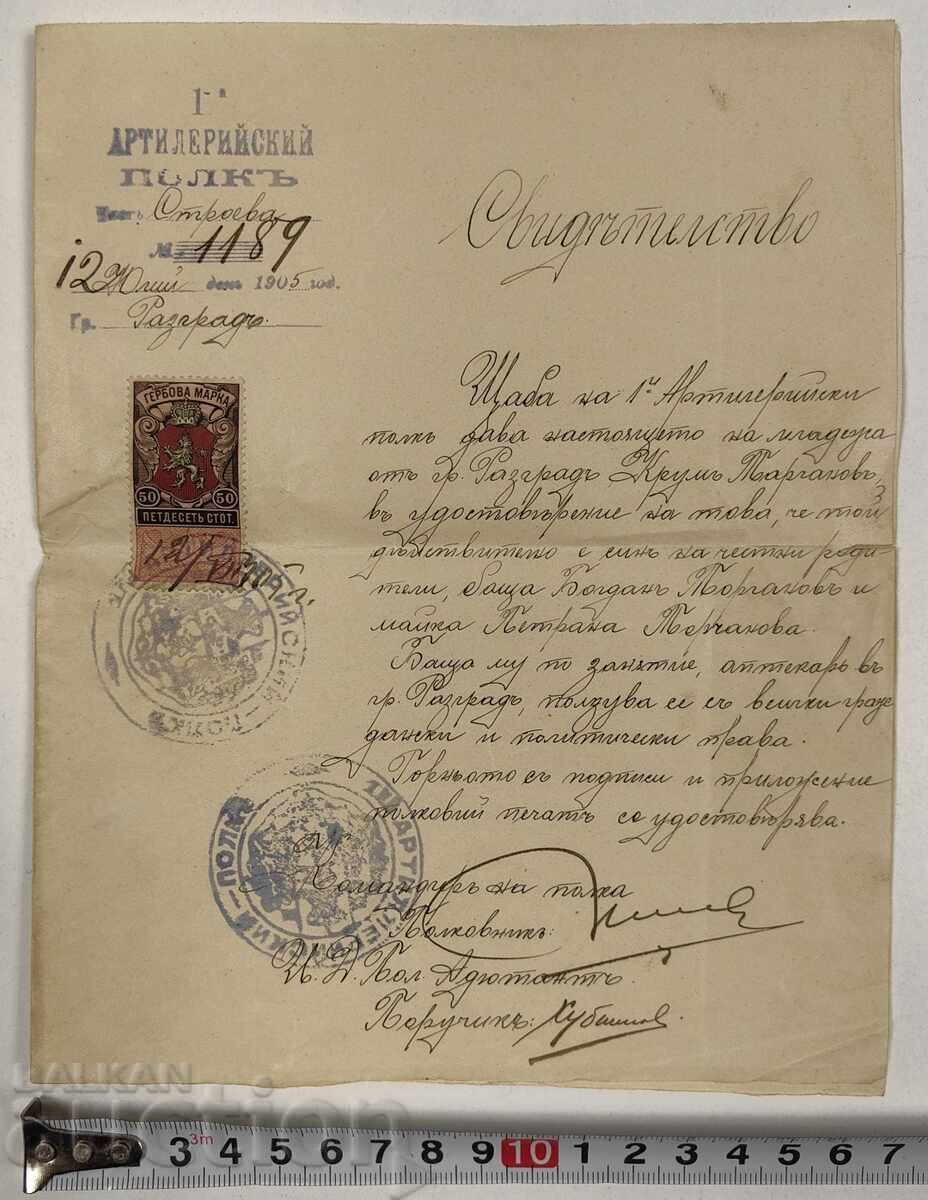 1й
АРТИЛЕРИЙСКИЙ
ПОЛКЪ
Часть Строева
№ 1189
12 Юлий день 1905 год.
Гр. Разградъ.
Свидѣтелство
ГЕРБОВА МАРКА
50 50
ПЕТДЕСЕТЬ СТОТ.
Щаба на 1й Артилерийски
полкъ дава настоящето на младежа
отъ гр. Разградъ Крумъ Торчановъ,
въ удостовѣрение на това, че той
дѣйствително е синъ на честни роди-
тели, баща Богданъ Торчановъ и
майка Петрана Торчанова.
Баща му по занятие, аптекарь въ
гр. Разградъ, ползува се съ всички граж
дански и политически права.
Горньото съ подписи и приложение
полковий печатъ се удостовѣрява.
Командиръ на полка
Полковникъ:
И. Д. Пол. Адютантъ
Поручикъ:
1й АРТИЛЕРИЙСКИЙ ПОЛКЪ
BALKAN
auction
3m
2 3 4 5 6 7 8 9 10 1 2 3 4 5 6 7